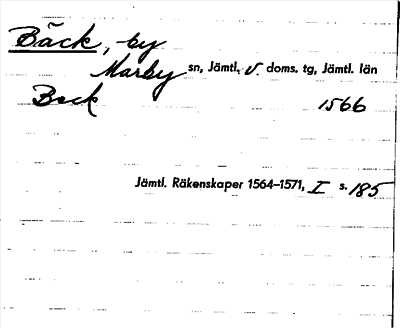 Bäck, by
Marby sn, Jämtl. V. doms. tg, Jämtl. län
Back 1566
Jämtl. Räkenskaper 1564–1571, I s. 185